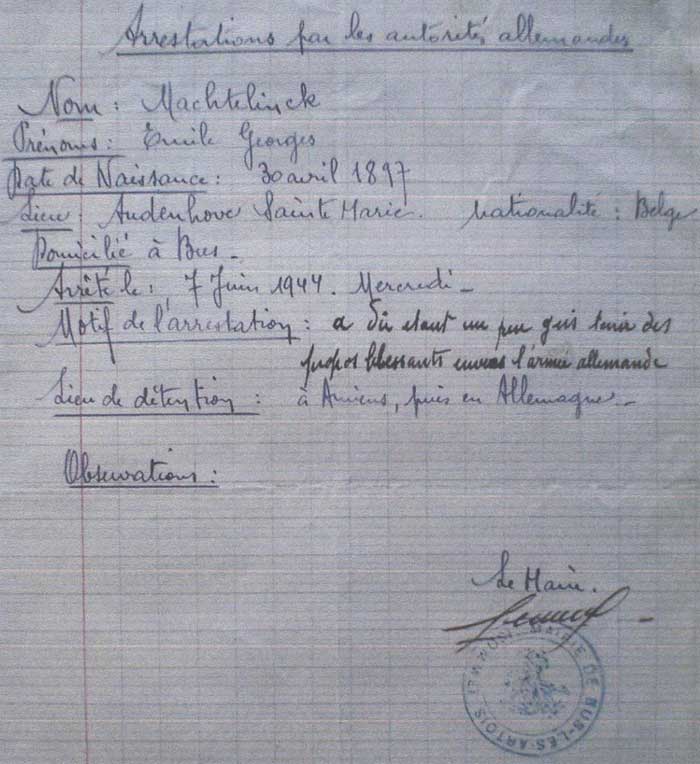 Arrestations par les autorités allemandes
Nom : Machtelinck
Prénoms : Emile Georges
Date de Naissance : 30 avril 1897
Lieu : Audenhove Sainte Marie. Nationalité : Belge
Domicilié à Bus -
Arrêté le : 7 Juin 1944. Mercredi -
Motif de l'arrestation : a dû étant un peu gris tenir des
propos blessants envers l'armée allemande
Lieu de détention : à Amiens, puis en Allemagne -
Observations :
Le Maire.
MAIRIE DE BUS-LES-ARTOIS